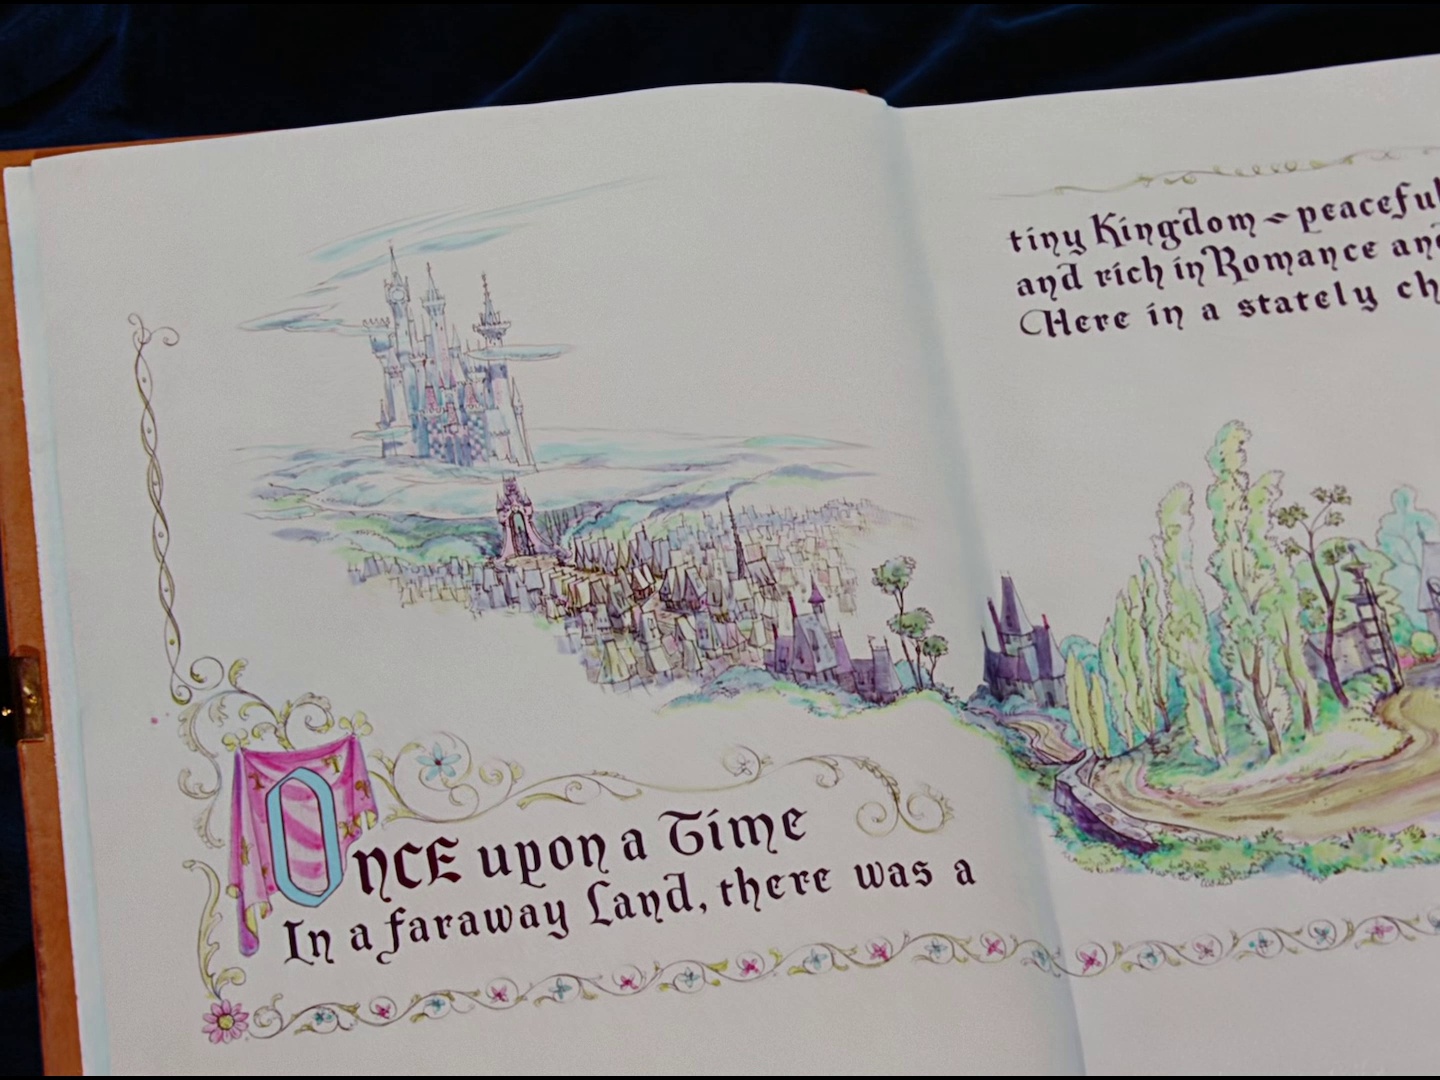 Once upon a Time
In a faraway Land, there was a
tiny Kingdom ~ peaceful
and rich in Romance and
Here in a stately ch